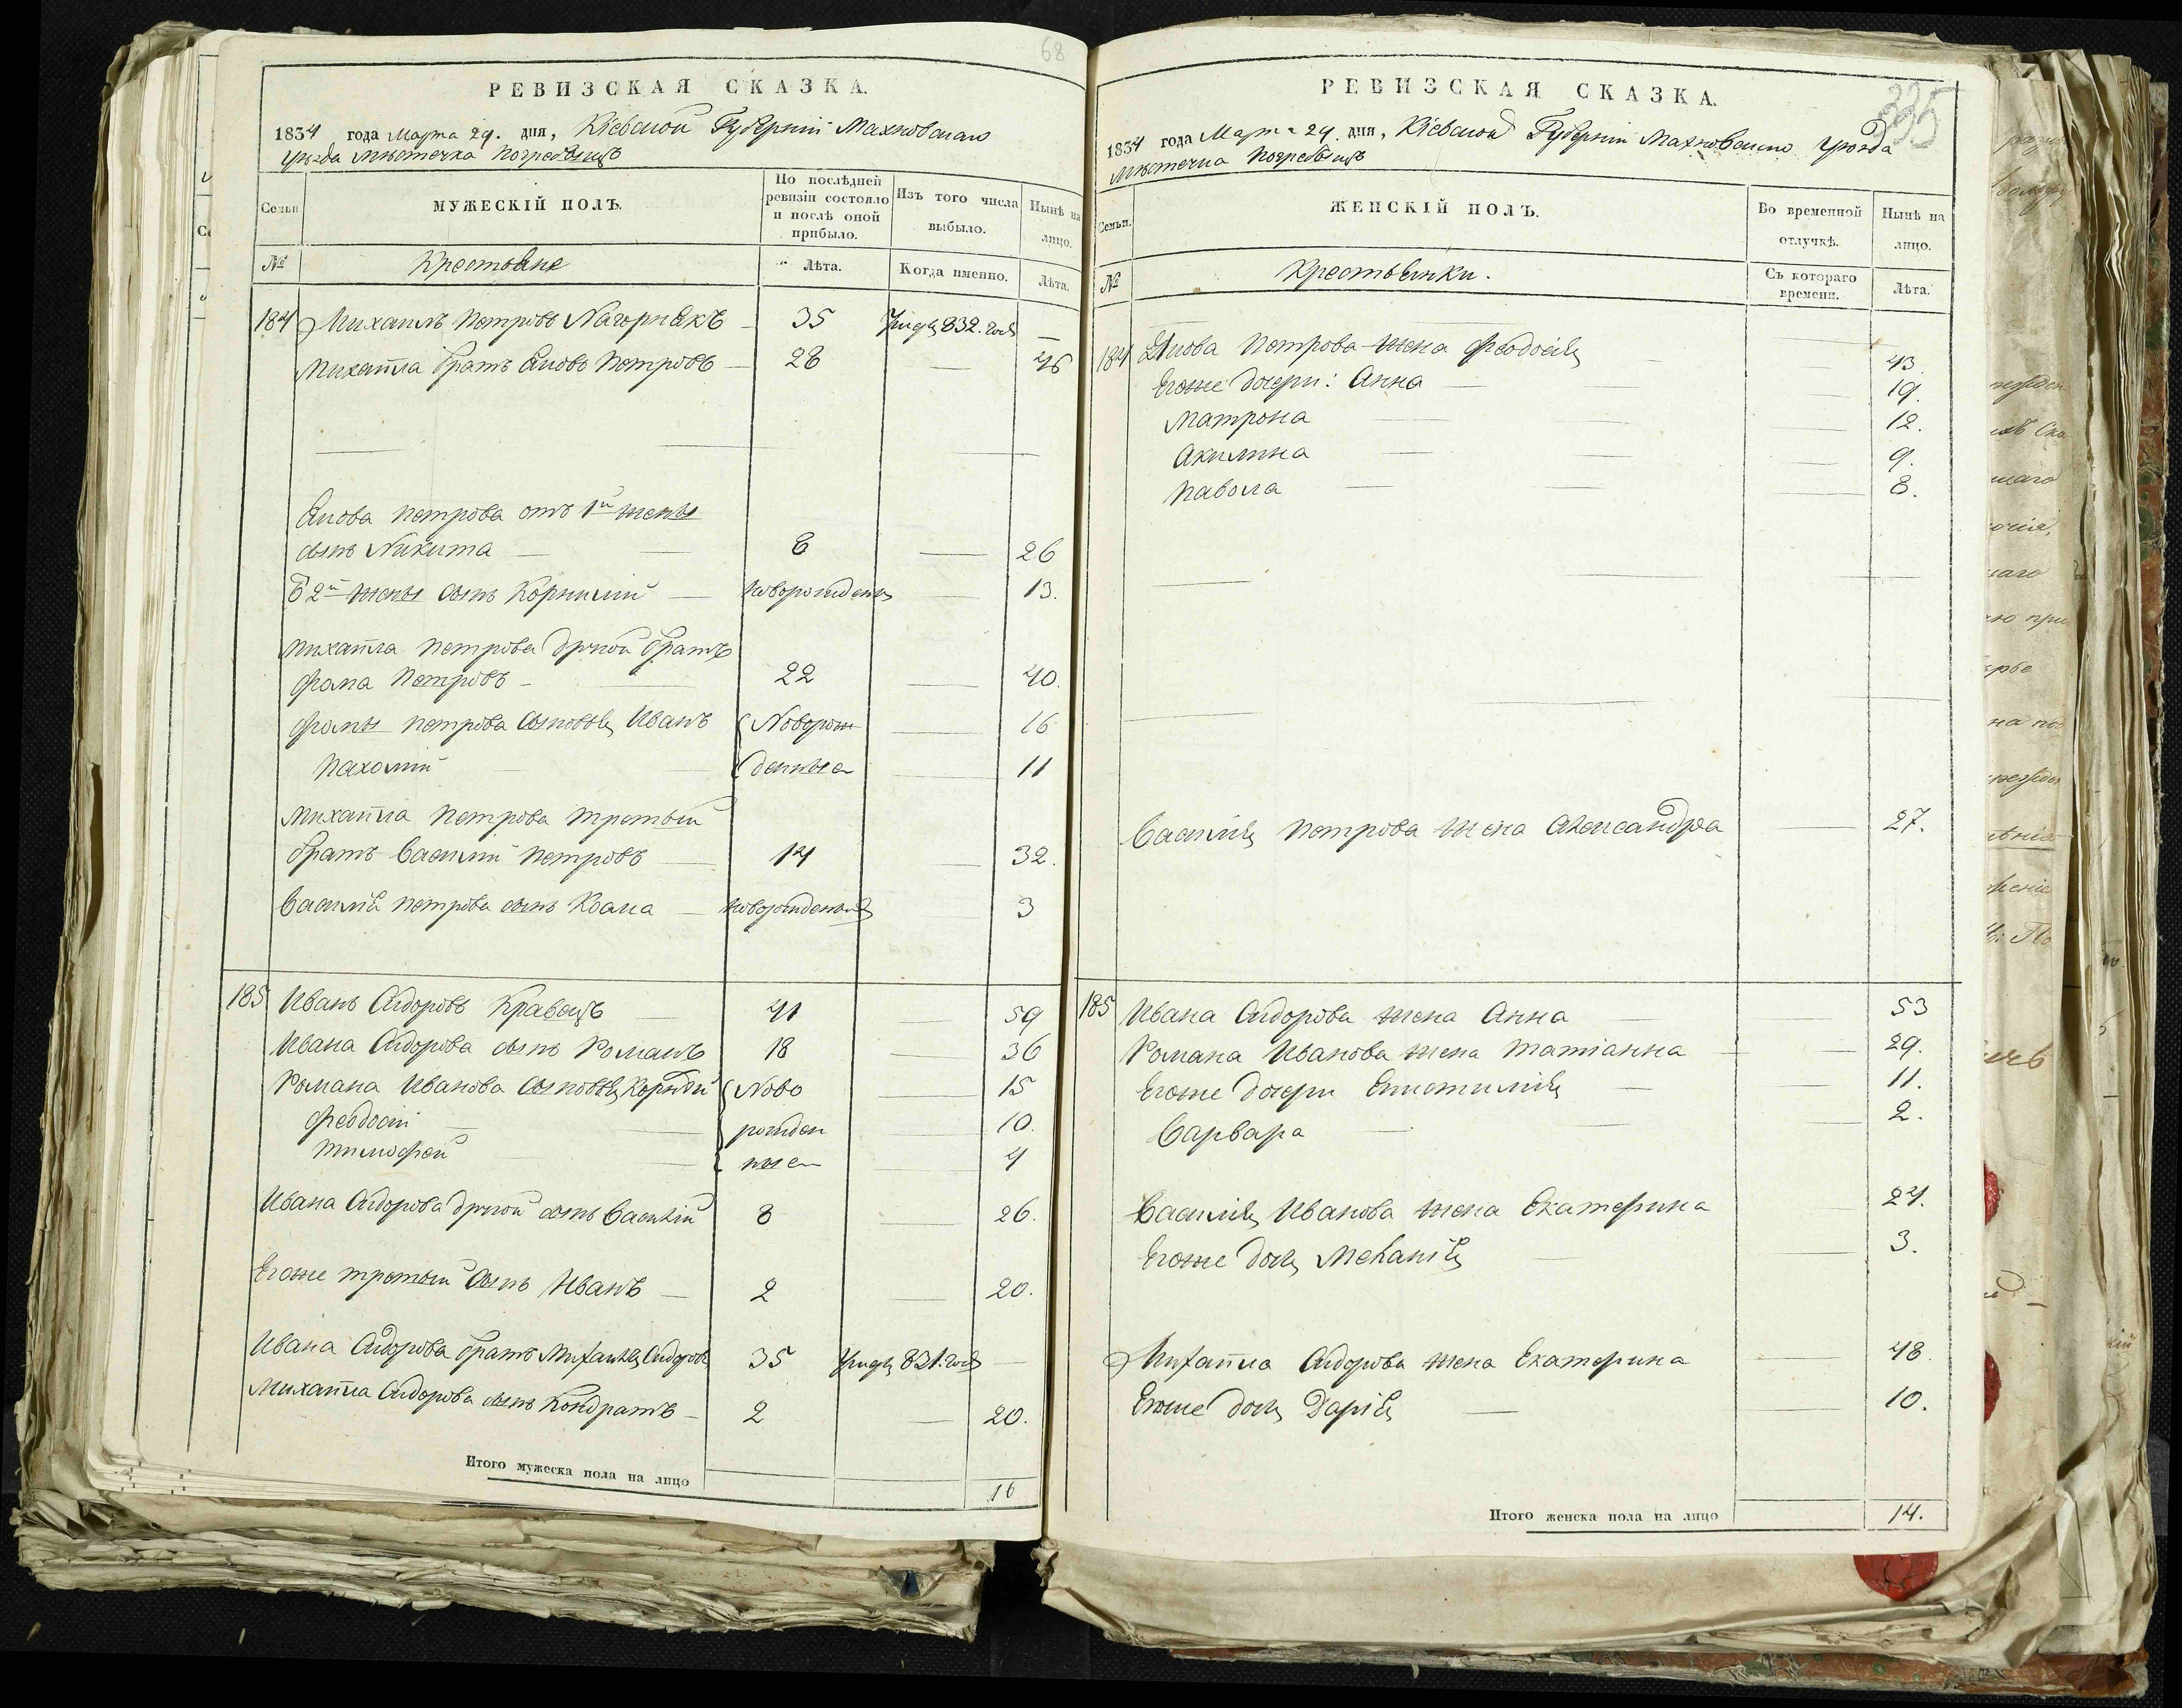 68
РЕВИЗСКАЯ СКАЗКА.
1834 года Марта 29. дня, Кіевской Губерніи Махновскаго
уѣзда мѣстечка Погребищъ
Семьи
МУЖЕСКІЙ ПОЛЪ.
По послѣдней ревизіи состояло и послѣ оной прибыло.
Изъ того числа выбыло.
Нынѣ на лицо.
№
Крестьяне
Лѣта.
Когда именно.
Лѣта.
184 Михаилъ Петровъ Нагорнякъ — 35 832. года —
Михаила братъ Яковъ Петровъ — 28 — 46
Якова Петрова отъ 1й жены
сынъ Никита — 8 — 26
2й жены сынъ Корнилій — новорожденъ — 13.
Михаила Петрова другой братъ
Фома Петровъ — 22 — 40.
Фомы Петрова сыновья Иванъ Новорож — 16
Пахомій — денные — 11
Михаила Петрова третьій
братъ Василій Петровъ — 14 — 32.
Василія Петрова сынъ Козма — новорожденный — 3
185 Иванъ Сидоровъ Кравецъ — 41 — 59
Ивана Сидорова сынъ Романъ 18 — 36
Романа Иванова сыновья Корнѣй Ново — 15
Феодосій — рожден — 10.
Тимофей — ные — 4
Ивана Сидорова другой сынъ Василій 8 — 26.
Егоже третьій сынъ Иванъ — 2 — 20.
Ивана Сидорова братъ Михайла Сидоровъ 35 831. года —
Михаила Сидорова сынъ Кондратъ — 2 — 20.
Итого мужеска пола на лицо 16
335
РЕВИЗСКАЯ СКАЗКА.
1834 года Марта 29. дня, Кіевской Губерніи Махновскаго уѣзда
мѣстечка Погребищъ
Семьи.
ЖЕНСКІЙ ПОЛЪ.
Во временной отлучкѣ.
Нынѣ на лицо.
№
Крестьянки.
Съ котораго времени.
Лѣта.
184 Якова Петрова жена Феодосія — 43.
Егоже дочери: Анна — 19.
Матрона — 12.
Акилина — 9.
Павола — 8.
Василія Петрова жена Александра — 27.
185 Ивана Сидорова жена Анна — 53
Романа Иванова жена Татіанна — 29.
Егоже дочери — 11.
Варвара — 2.
Василія Иванова жена Екатерина — 24.
Егоже дочь Меланія — 3.
Михаила Сидорова жена Екатерина — 48.
Егоже дочь Дарія — 10.
Итого женска пола на лицо 14.